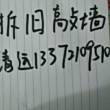 拆旧高墙
清运13372109510